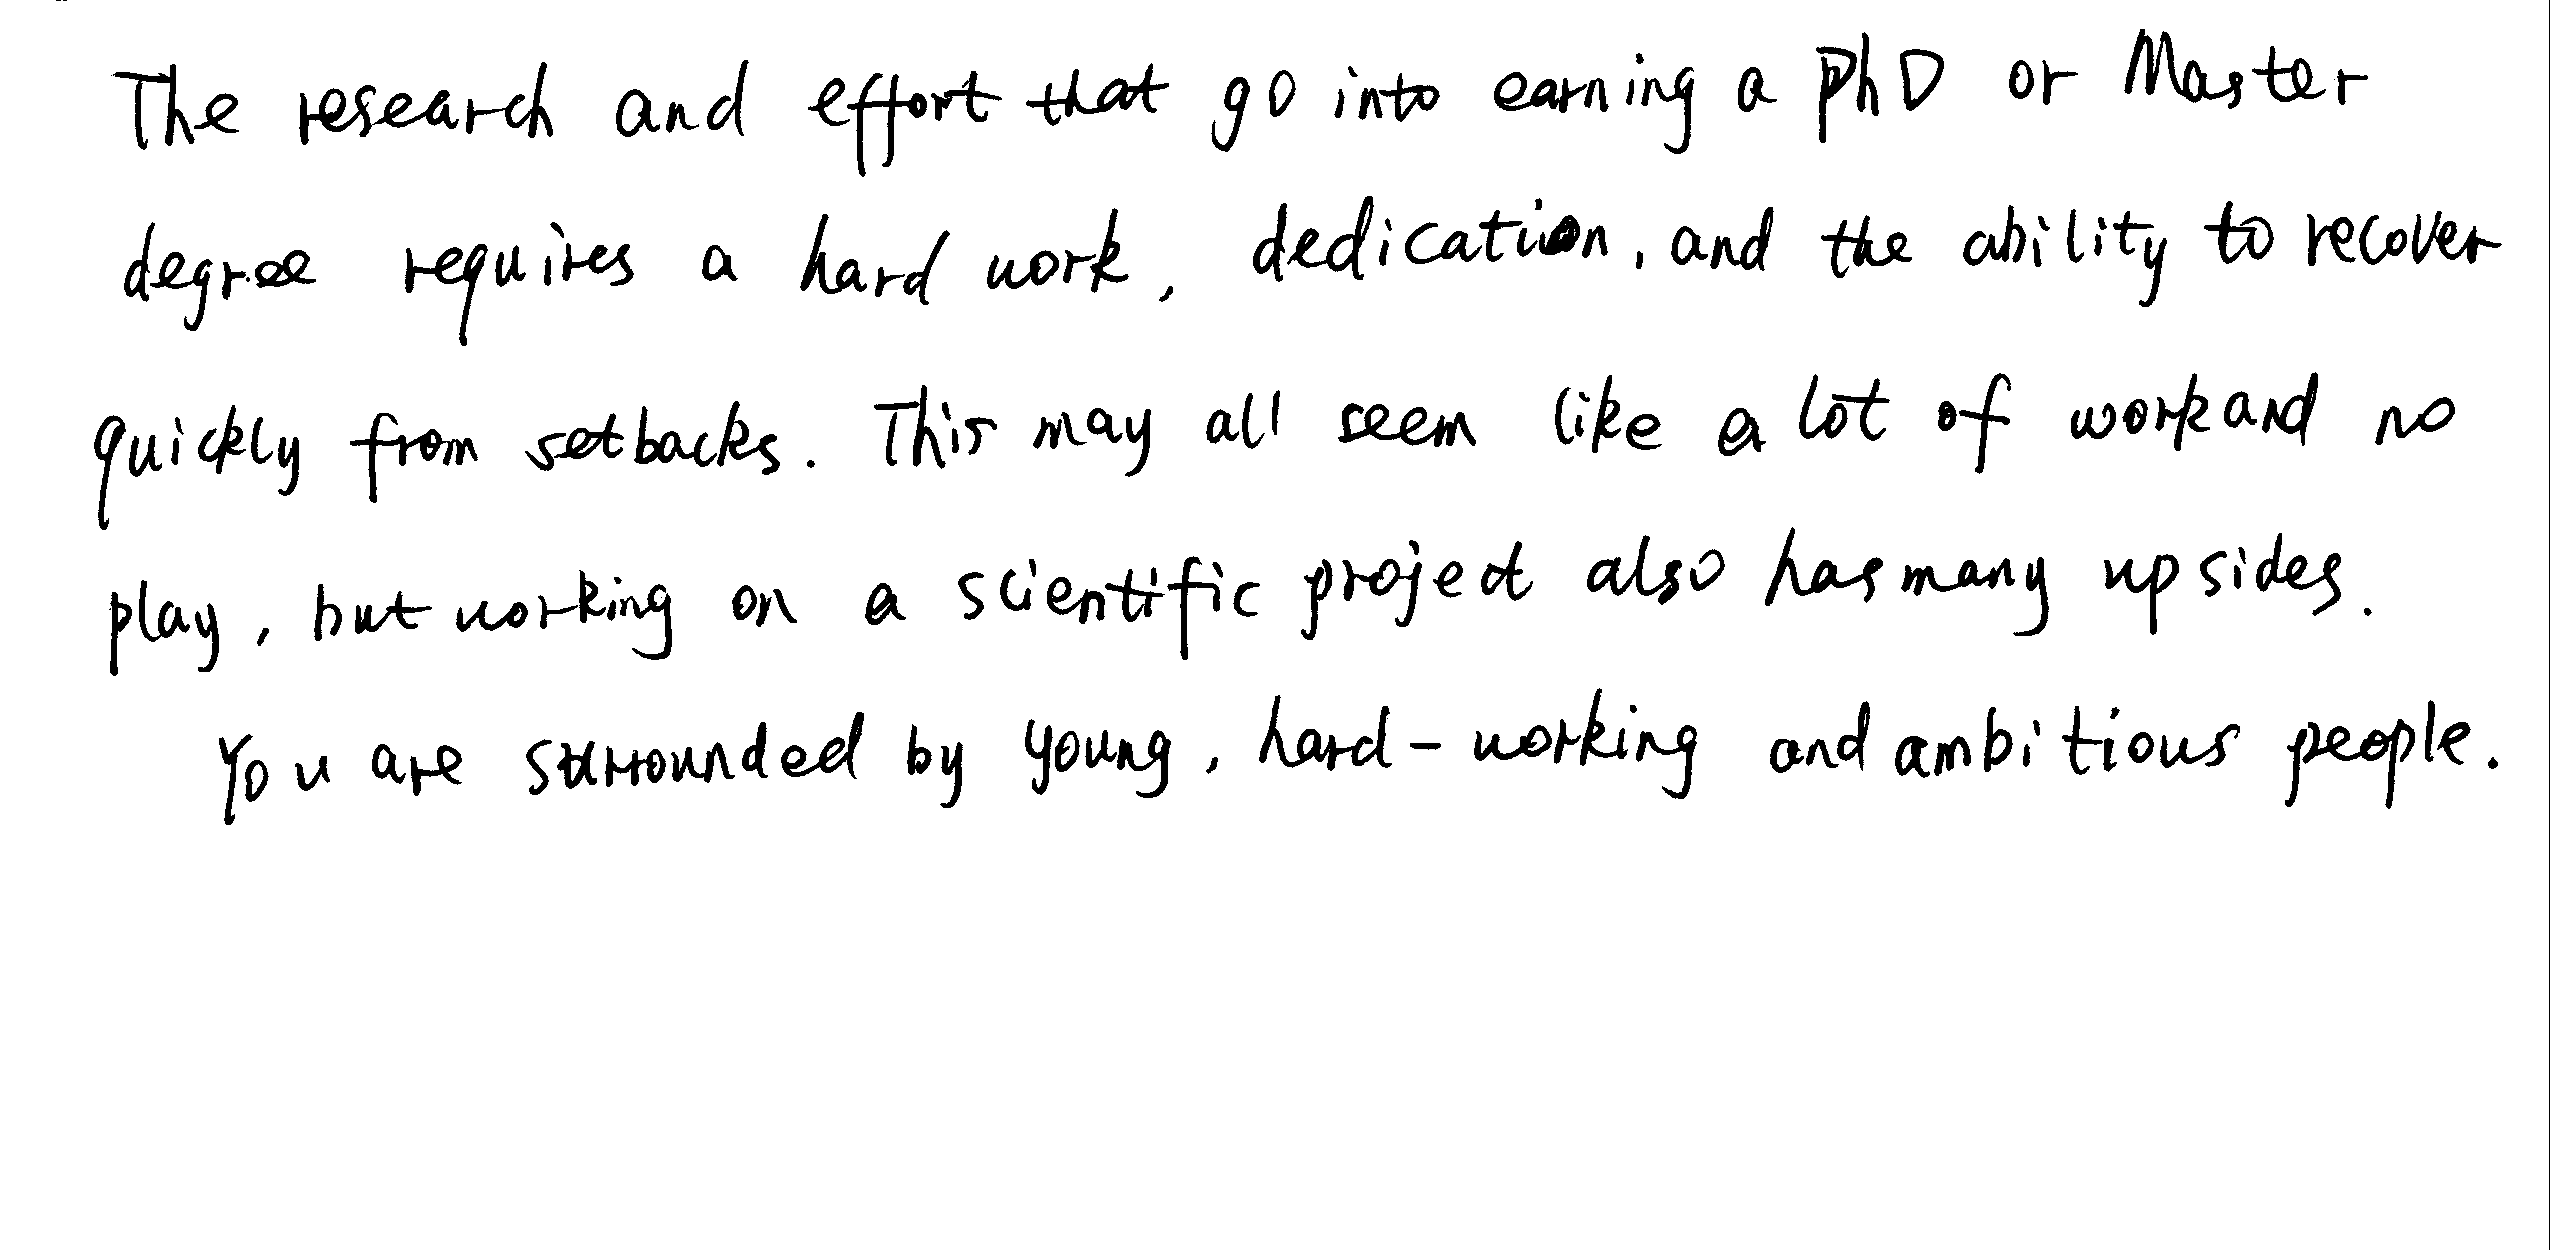 The research and effort that go into earning a PhD or Master
degree requires a hard work, dedication, and the ability to recover
quickly from setbacks. This may all seem like a lot of work and no
play, but working on a scientific project also has many upsides.
You are surrounded by young, hard-working and ambitious people.